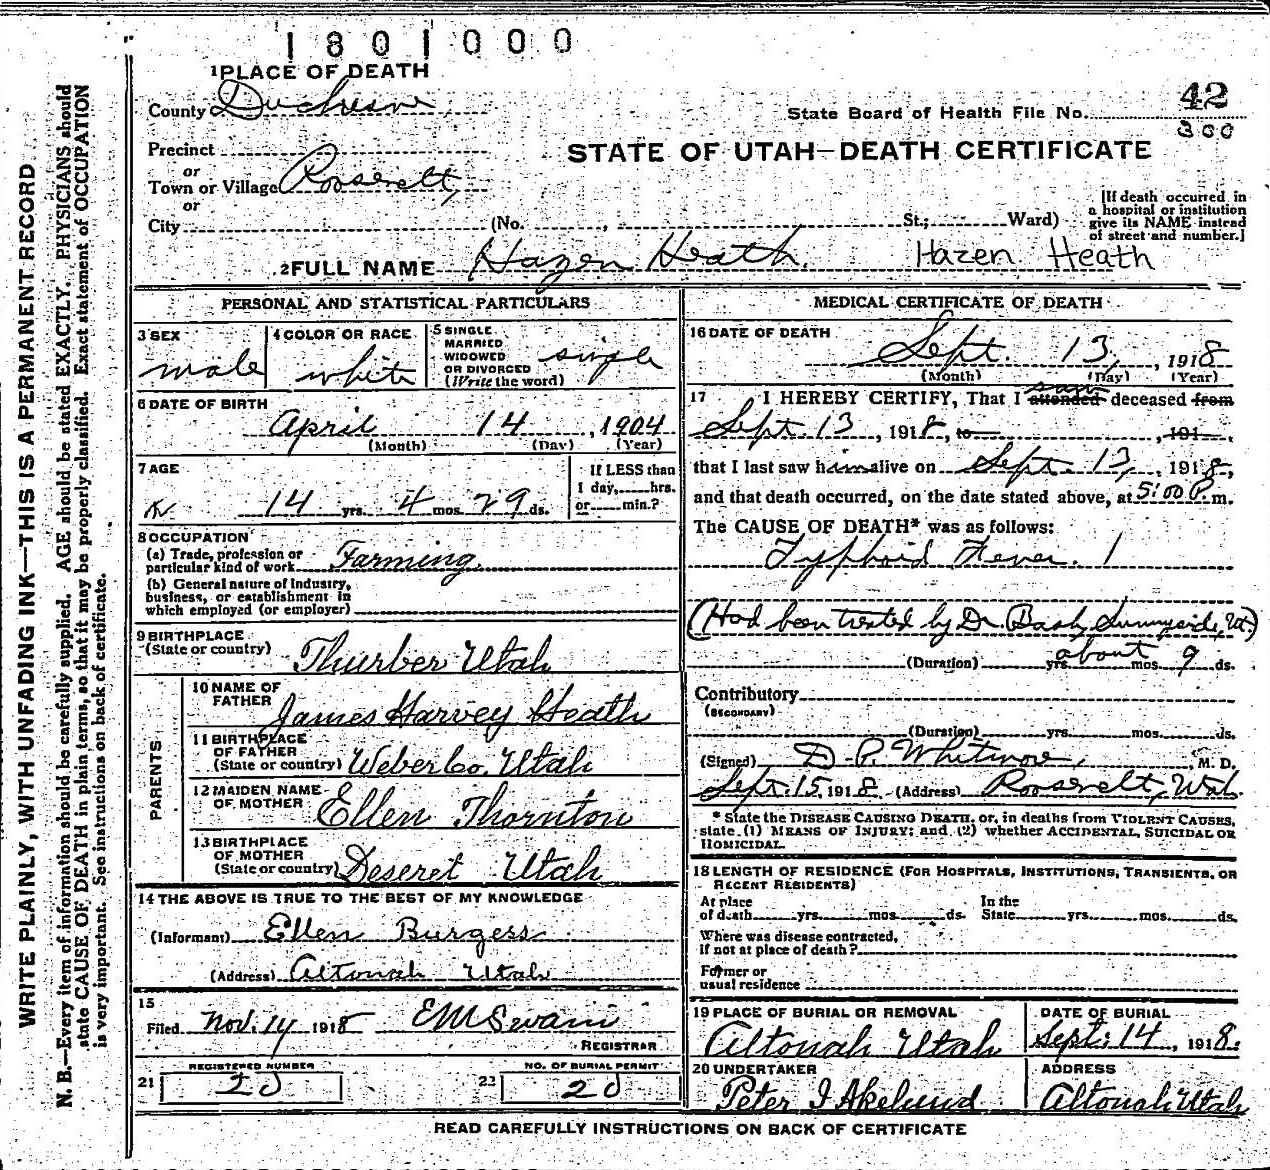 1801000
1 PLACE OF DEATH
County Duchesne
State Board of Health File No. 42
300
Precinct
or
Town or Village Roosevelt,
or
City (No. , St.; Ward)
STATE OF UTAH—DEATH CERTIFICATE
[If death occurred in
a hospital or institution
give its NAME instead
of street and number.]
2 FULL NAME Hazen Heath. Hazen Heath
PERSONAL AND STATISTICAL PARTICULARS
3 SEX
male
4 COLOR OR RACE
white
5 SINGLE
MARRIED
WIDOWED
OR DIVORCED
(Write the word)
single
6 DATE OF BIRTH
April 14, 1904
(Month) (Day) (Year)
7 AGE
14 yrs. 4 mos. 29 ds.
If LESS than
1 day, hrs.
or min.?
8 OCCUPATION
(a) Trade, profession or
particular kind of work Farming.
(b) General nature of industry,
business, or establishment in
which employed (or employer)
9 BIRTHPLACE
(State or country)
Thurber Utah
PARENTS
10 NAME OF
FATHER
James Harvey Heath
11 BIRTHPLACE
OF FATHER
(State or country) Weber Co. Utah
12 MAIDEN NAME
OF MOTHER Ellen Thornton
13 BIRTHPLACE
OF MOTHER
(State or country) Deseret Utah
14 THE ABOVE IS TRUE TO THE BEST OF MY KNOWLEDGE
(Informant) Ellen Burgess
(Address) Altonah Utah
15
Filed Nov. 14 1918 E M Swain
REGISTRAR
21 REGISTERED NUMBER
20
22 NO. OF BURIAL PERMIT
20
MEDICAL CERTIFICATE OF DEATH
16 DATE OF DEATH
Sept. 13, 1918
(Month) (Day) (Year)
17 I HEREBY CERTIFY, That I saw attended deceased from
Sept. 13, 1918, to , 191 ,
that I last saw him alive on Sept. 13, 1918,
and that death occurred, on the date stated above, at 5:00 P. m.
The CAUSE OF DEATH* was as follows:
Typhoid Fever. 1
(Had been treated by Dr. Bash, Sunnyside, Ut.)
(Duration) yrs. about mos. 9 ds.
Contributory
(SECONDARY)
(Duration) yrs. mos. ds.
(Signed) D. P. Whitmore, M. D.
Sept. 15, 1918 (Address) Roosevelt, Utah.
* State the DISEASE CAUSING DEATH, or, in deaths from VIOLENT CAUSES,
state (1) MEANS OF INJURY; and (2) whether ACCIDENTAL, SUICIDAL OR
HOMICIDAL.
18 LENGTH OF RESIDENCE (FOR HOSPITALS, INSTITUTIONS, TRANSIENTS, OR
RECENT RESIDENTS)
At place
of death yrs. mos. ds.
In the
State yrs. mos. ds.
Where was disease contracted,
if not at place of death?
Former or
usual residence
19 PLACE OF BURIAL OR REMOVAL
Altonah Utah
DATE OF BURIAL
Sept. 14, 1918.
20 UNDERTAKER
Peter I Akelund
ADDRESS
Altonah Utah
READ CAREFULLY INSTRUCTIONS ON BACK OF CERTIFICATE
WRITE PLAINLY, WITH UNFADING INK—THIS IS A PERMANENT RECORD
N. B.—Every item of information should be carefully supplied. AGE should be stated EXACTLY. PHYSICIANS should
state CAUSE OF DEATH in plain terms, so that it may be properly classified. Exact statement of OCCUPATION
is very important. See instructions on back of certificate.